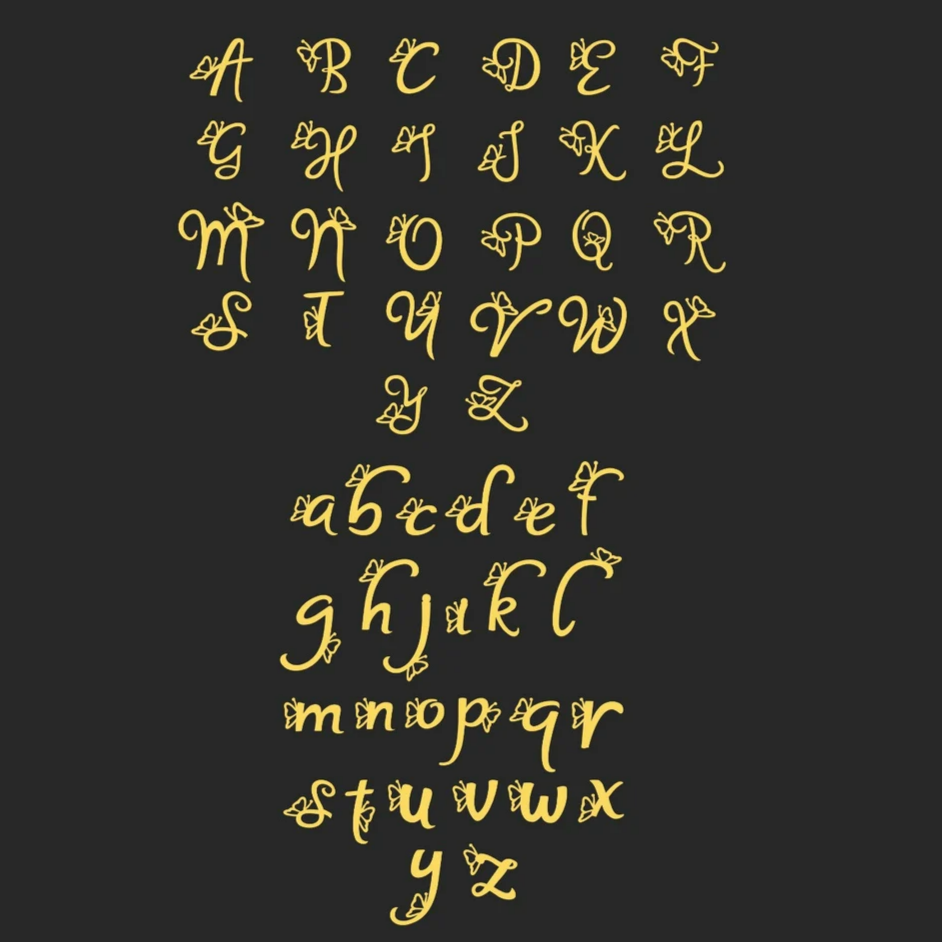 A B C D E F
G H I J K L
M N O P Q R
S T U V W X
Y Z
a b c d e f
g h j i k l
m n o p q r
s t u v w x
y z